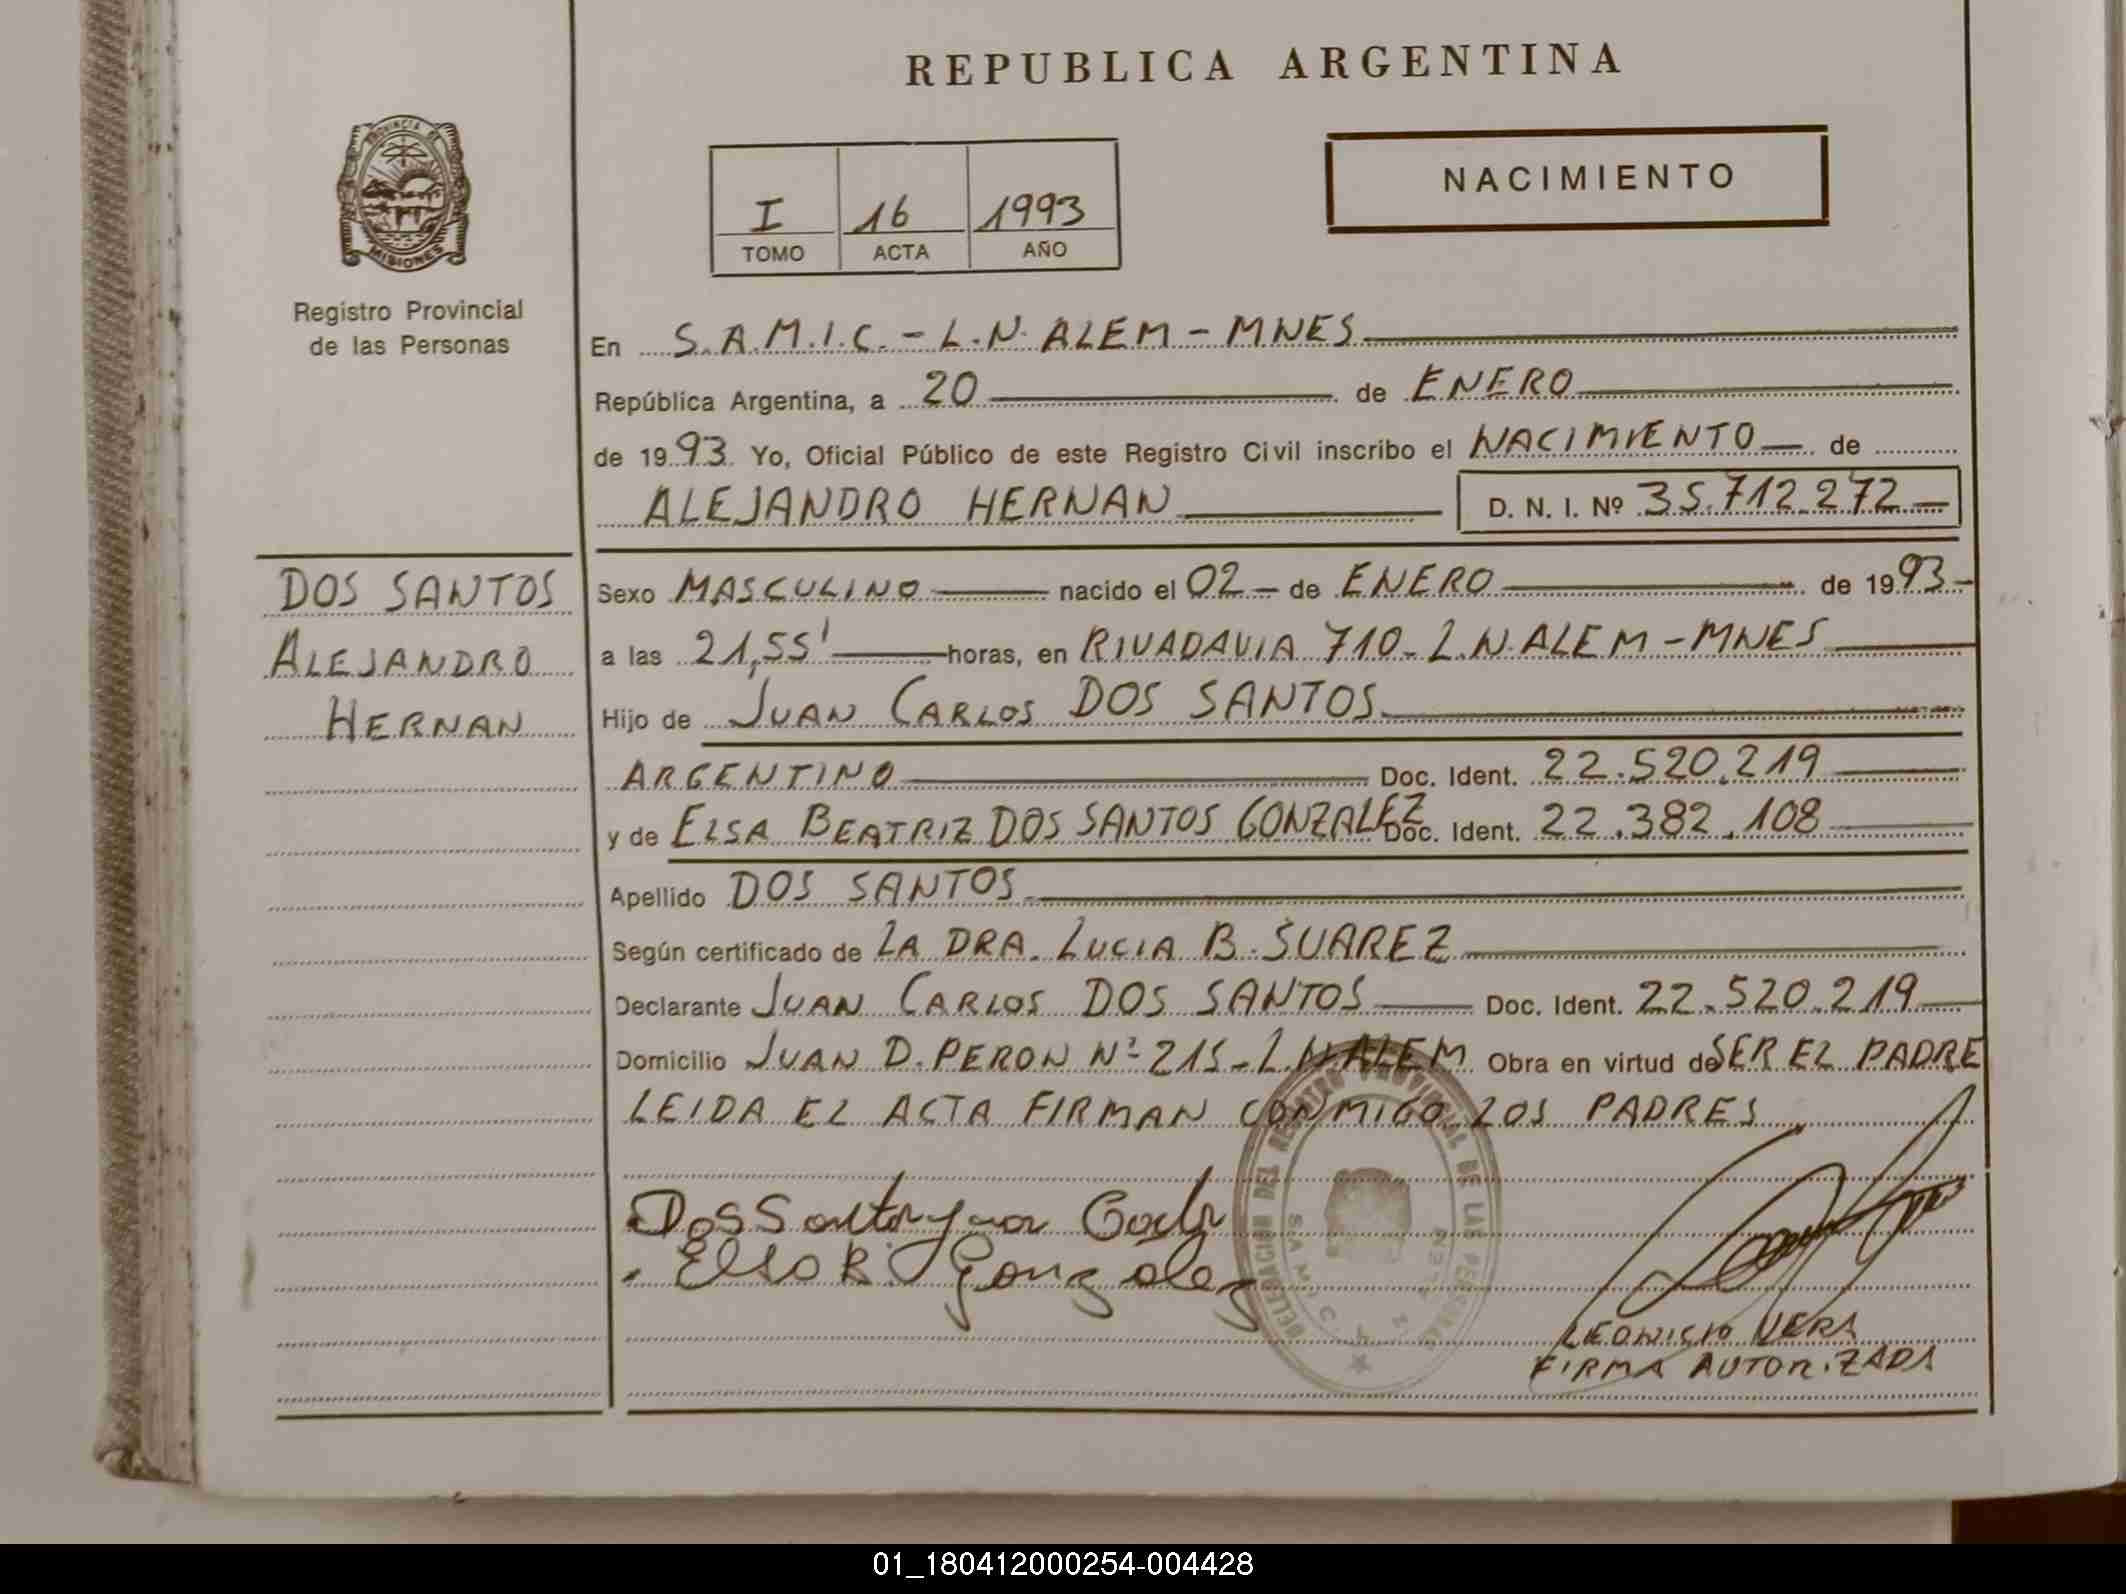 REPUBLICA ARGENTINA
PROVINCIA DE
MISIONES
Registro Provincial
de las Personas
NACIMIENTO
I 16 1993
TOMO ACTA AÑO
En S.A.M.I.C. - L.N. ALEM - MNES
República Argentina, a 20 de ENERO
de 1993 Yo, Oficial Público de este Registro Civil inscribo el NACIMIENTO de
ALEJANDRO HERNAN D. N. I. Nº 35.712.272
DOS SANTOS
ALEJANDRO
HERNAN
Sexo MASCULINO nacido el 02 de ENERO de 1993
a las 21,55' horas, en RIVADAVIA 710 - L.N. ALEM - MNES
Hijo de JUAN CARLOS DOS SANTOS
ARGENTINO Doc. Ident. 22.520.219
y de ELSA BEATRIZ DOS SANTOS GONZALEZ Doc. Ident. 22.382.108
Apellido DOS SANTOS
Según certificado de LA DRA. LUCIA B. SUAREZ
Declarante JUAN CARLOS DOS SANTOS Doc. Ident. 22.520.219
Domicilio JUAN D. PERON Nº 215 - L.N. ALEM Obra en virtud de SER EL PADRE
LEIDA EL ACTA FIRMAN CONMIGO LOS PADRES
Dos Santos Juan Carlos
Elsa B. Gonzalez
DELEGACION DEL REGISTRO PROVINCIAL DE LAS PERSONAS
LEONICIO VERA
FIRMA AUTORIZADA
01_180412000254-004428